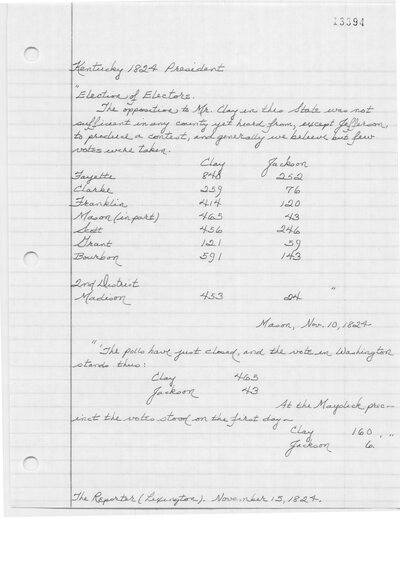 13394
Kentucky 1824 President
"Election of Electors.
The opposition to Mr. Clay in this State was not
sufficient in any county yet heard from, except Jefferson,
to produce a contest, and generally we believe but few
votes were taken.
Clay Jackson
Fayette 848 252
Clarke 259 76
Franklin 414 120
Mason (in part) 465 43
Scott 456 246
Grant 121 59
Bourbon 591 143
2nd District
Madison 453 24 "
Mason, Nov. 10, 1824
"'The polls have just closed, and the vote in Washington
stands thus:
Clay 465
Jackson 43
At the Mayslick prec-
inct the votes stood on the first day—
Clay 160 , "
Jackson 6
The Reporter (Lexington). November 15, 1824.